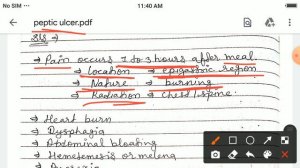 No SIM
11:40 AM
peptic ulcer.pdf
→ Pain occurs 1 to 3 hours after meal
→ Location → epigastric region
→ Nature → burning
→ Radiation → Chest / spine.
→ Heart burn
→ Dysphagia
→ Abdominal bloating
→ Hemetemesis or melena